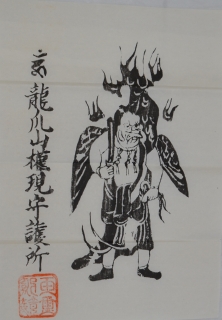 龍爪山權現守護所